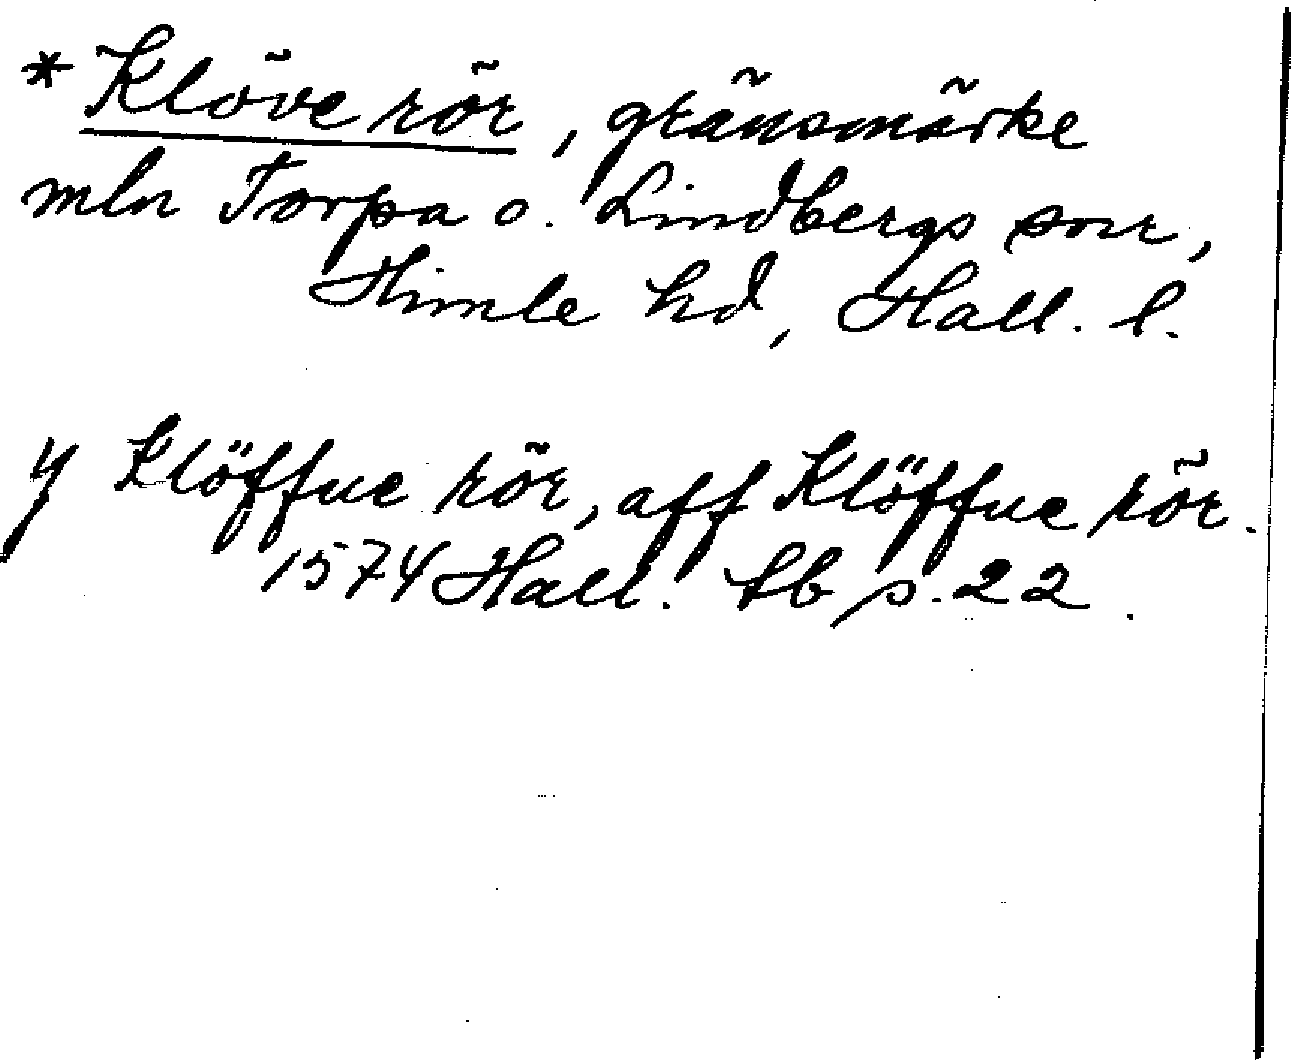 * Klöve rör, gränsmärke
mln Torpa o. Lindbergs snr,
Himle hd, Hall. l.
y Klöffue rör, aff Klöffue rör.
1574 Hall. tb s. 22.